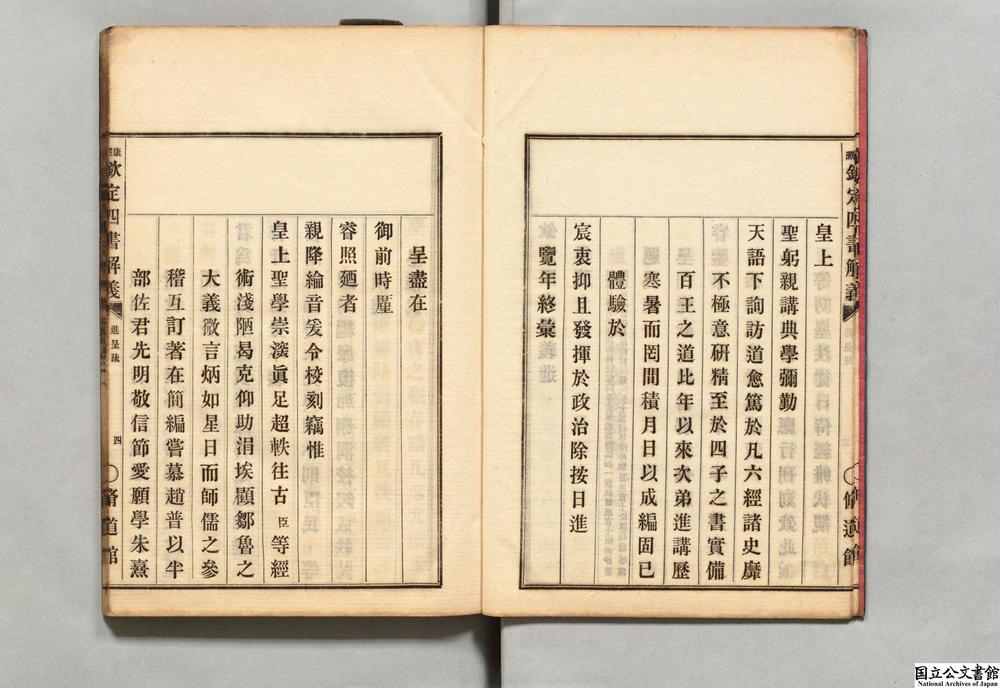 皇上
聖躬親講典學彌勤
天語下詢訪道愈篤於凡六經諸史靡
不極意研精至於四子之書實備
百王之道比年以來次弟進講歷
寒暑而罔間積月日以成編固已
體驗於
宸衷抑且發揮於政治除按日進
覽年終彙
呈盡在
御前時厪
睿照廼者
親降綸音爰令校刻竊惟
皇上聖學崇深眞足超軼往古臣等經
術淺陋曷克仰助涓埃顧鄒魯之
大義微言炳如星日而師儒之參
稽互訂著在簡編嘗慕趙普以半
部佐君先明敬信節愛願學朱熹
欽定四書解義
進呈疏
四
脩道館
国立公文書館
National Archives of Japan